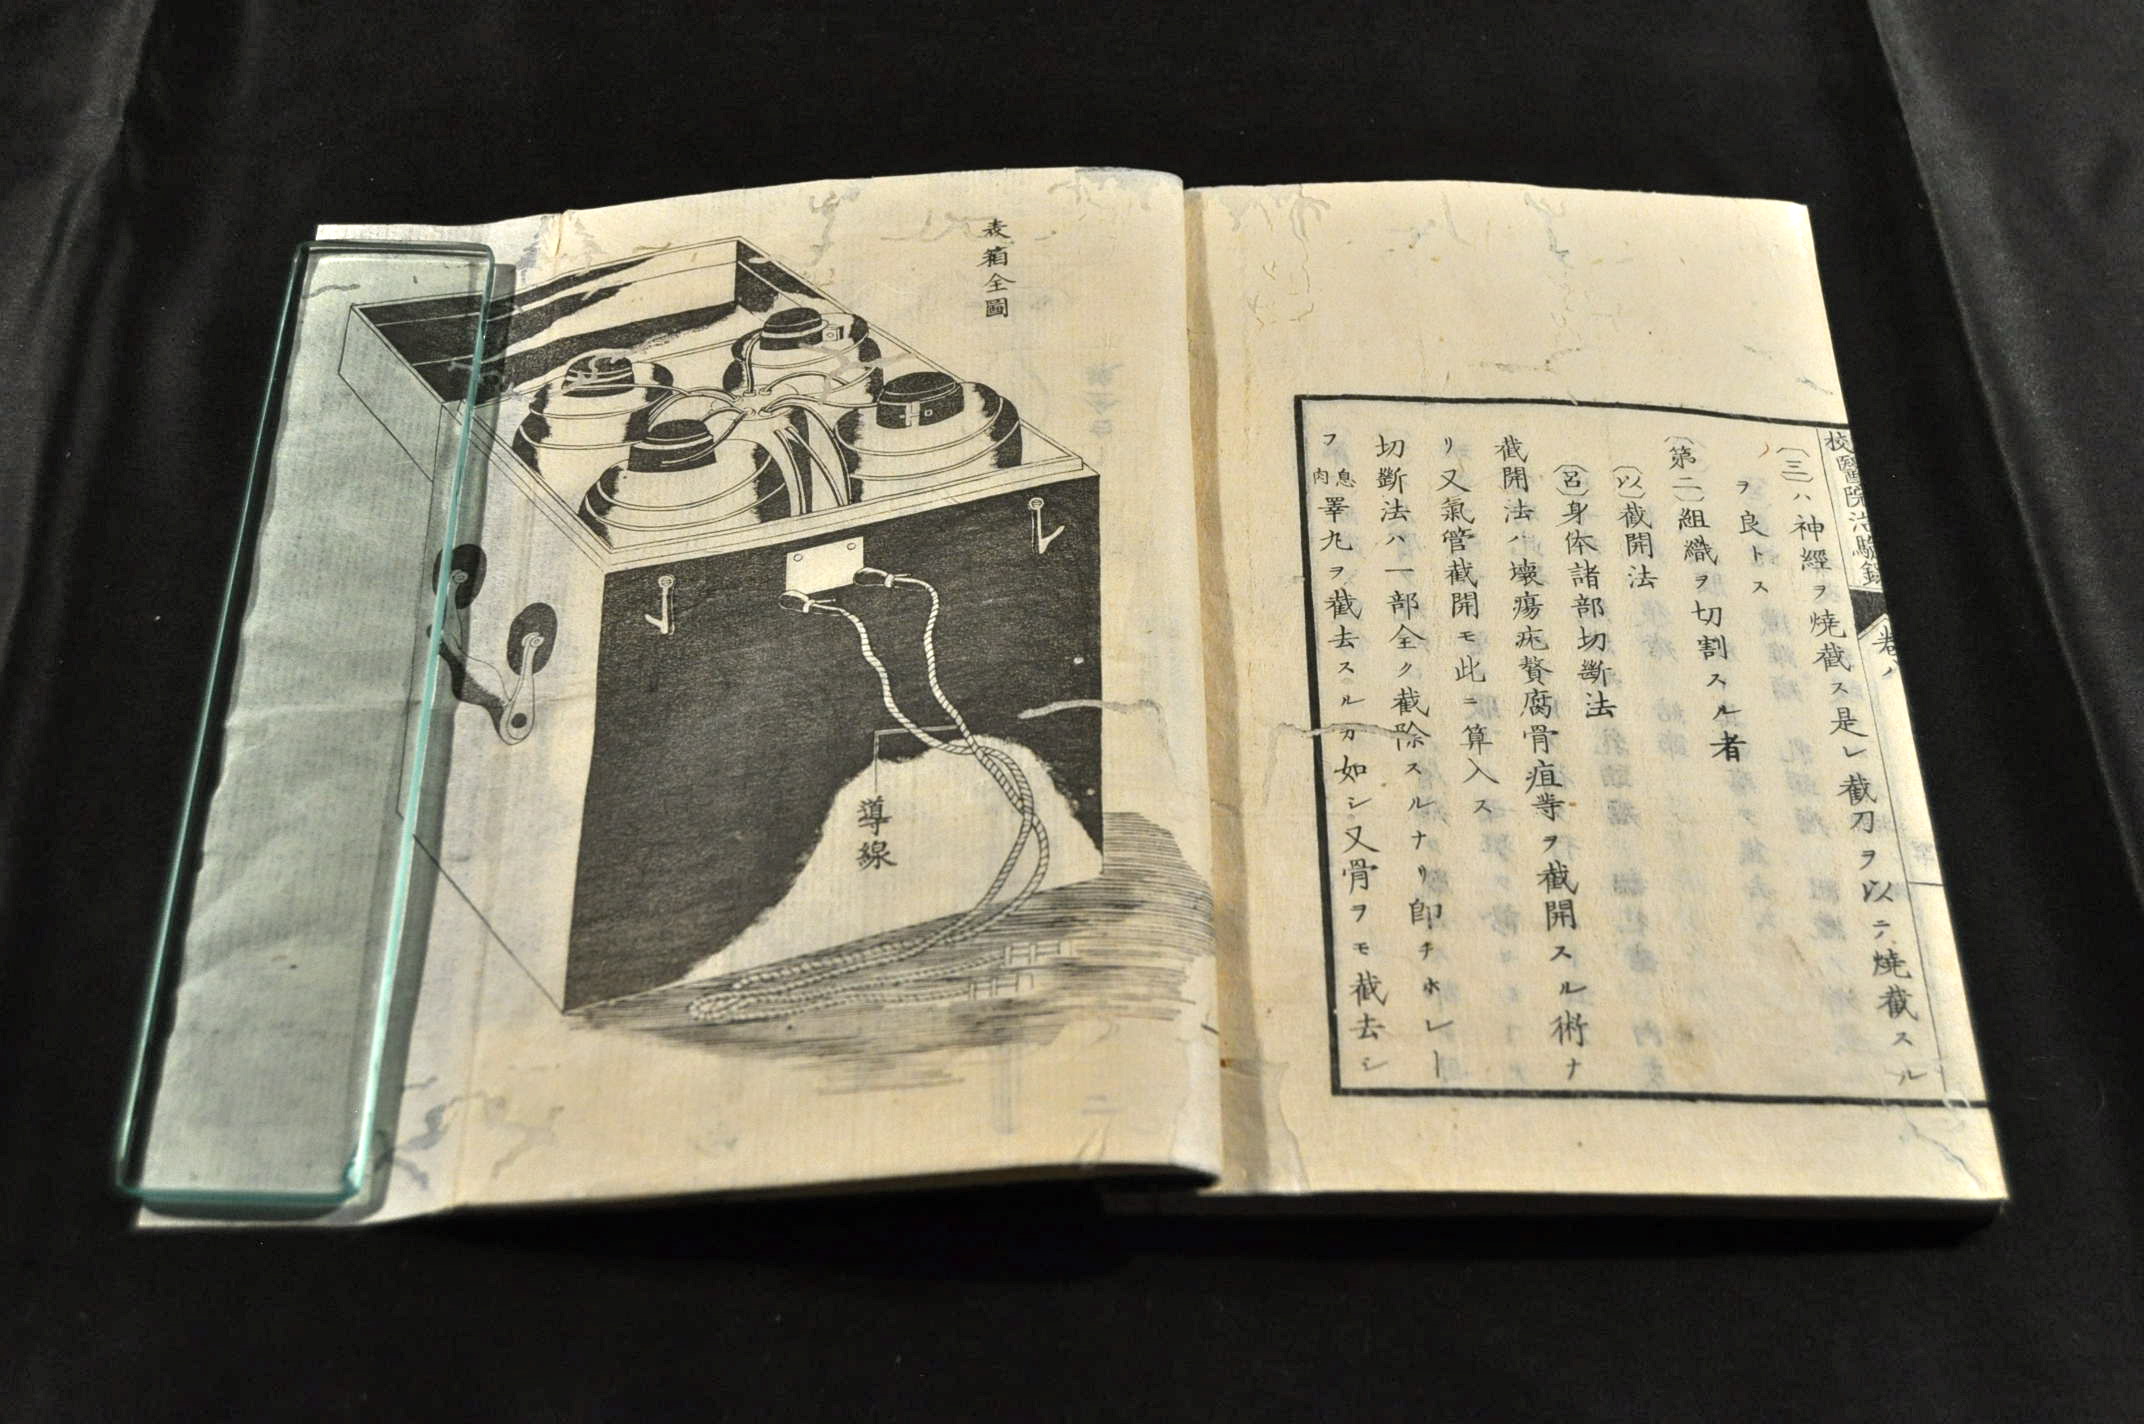 校醫院治驗錄 卷八
(三)ハ神經ヲ燒截ス是レ截刀ヲ以テ燒截スル
ヲ良トス
(第二)組織ヲ切割スル者
(以)截開法
(呂)身体諸部切斷法
截開法ハ壞瘍疣贅腐骨疽等ヲ截開スル術ナ
リ又氣管截開モ此ニ算入ス
切斷法ハ一部全ク截除スルナリ即チホレー
フ息肉睪丸ヲ截去スルカ如シ又骨ヲモ截去シ
表箱全圖
導線